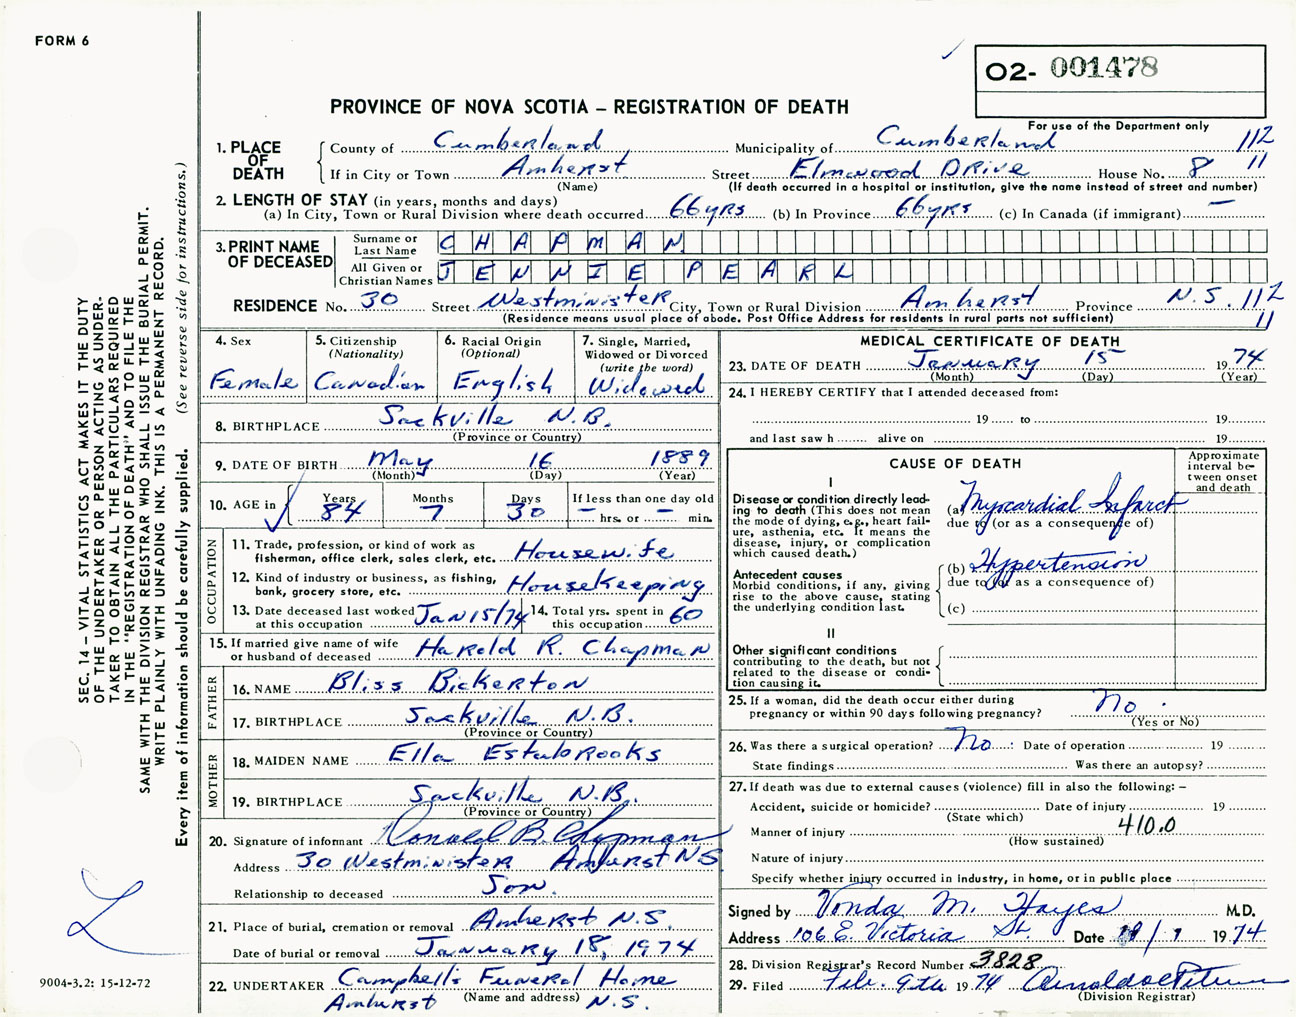 FORM 6
O2- 001478
For use of the Department only
PROVINCE OF NOVA SCOTIA – REGISTRATION OF DEATH
1. PLACE OF DEATH
County of Cumberland Municipality of Cumberland 112
If in City or Town Amherst Street Elmwood Drive House No. 8 11
(Name) (If death occurred in a hospital or institution, give the name instead of street and number)
2. LENGTH OF STAY (in years, months and days)
(a) In City, Town or Rural Division where death occurred 66 yrs (b) In Province 66 yrs (c) In Canada (if immigrant) —
3. PRINT NAME OF DECEASED
Surname or Last Name CHAPMAN
All Given or Christian Names JENNIE PEARL
RESIDENCE No. 30 Street Westminister City, Town or Rural Division Amherst Province N.S. 112
(Residence means usual place of abode. Post Office Address for residents in rural parts not sufficient) 11
4. Sex
Female
5. Citizenship
(Nationality)
Canadian
6. Racial Origin
(Optional)
English
7. Single, Married,
Widowed or Divorced
(write the word)
Widowed
8. BIRTHPLACE Sackville N.B.
(Province or Country)
9. DATE OF BIRTH May 16 1889
(Month) (Day) (Year)
10. AGE in Years Months Days If less than one day old
84 7 30 — hrs. or — min.
OCCUPATION
11. Trade, profession, or kind of work as
fisherman, office clerk, sales clerk, etc. Housewife
12. Kind of industry or business, as fishing,
bank, grocery store, etc. Housekeeping
13. Date deceased last worked
at this occupation Jan 15/74
14. Total yrs. spent in
this occupation 60
15. If married give name of wife
or husband of deceased Harold R. Chapman
FATHER
16. NAME Bliss Bickerton
17. BIRTHPLACE Sackville N.B.
(Province or Country)
MOTHER
18. MAIDEN NAME Ella Estabrooks
19. BIRTHPLACE Sackville N.B.
(Province or Country)
20. Signature of informant Donald B. Chapman
Address 30 Westminister Amherst NS
Relationship to deceased Son.
21. Place of burial, cremation or removal Amherst N.S.
Date of burial or removal January 18, 1974
22. UNDERTAKER Campbell's Funeral Home
(Name and address)
Amherst N.S.
MEDICAL CERTIFICATE OF DEATH
23. DATE OF DEATH January 15 1974
(Month) (Day) (Year)
24. I HEREBY CERTIFY that I attended deceased from:
19 to 19
and last saw h alive on 19
CAUSE OF DEATH
Approximate
interval be-
tween onset
and death
I
Disease or condition directly lead-
ing to death (This does not mean
the mode of dying, e.g., heart fail-
ure, asthenia, etc. It means the
disease, injury, or complication
which caused death.)
(a) Myocardial Infarct
due to (or as a consequence of)
Antecedent causes
Morbid conditions, if any, giving
rise to the above cause, stating
the underlying condition last.
(b) Hypertension
due to (or as a consequence of)
(c)
II
Other significant conditions
contributing to the death, but not
related to the disease or condi-
tion causing it.
25. If a woman, did the death occur either during
pregnancy or within 90 days following pregnancy? No.
(Yes or No)
26. Was there a surgical operation? No : Date of operation 19
State findings Was there an autopsy?
27. If death was due to external causes (violence) fill in also the following: –
Accident, suicide or homicide? Date of injury 19
(State which)
Manner of injury 410.0
(How sustained)
Nature of injury
Specify whether injury occurred in industry, in home, or in public place
Signed by Vonda M. Hayes M.D.
Address 106 E. Victoria St. Date / 1 1974
28. Division Registrar's Record Number 3828
29. Filed Feb. 9th 1974
(Division Registrar)
SEC. 14 – VITAL STATISTICS ACT MAKES IT THE DUTY
OF THE UNDERTAKER OR PERSON ACTING AS UNDER-
TAKER TO OBTAIN ALL THE PARTICULARS REQUIRED
IN THE "REGISTRATION OF DEATH" AND TO FILE THE
SAME WITH THE DIVISION REGISTRAR WHO SHALL ISSUE THE BURIAL PERMIT.
WRITE PLAINLY WITH UNFADING INK. THIS IS A PERMANENT RECORD.
Every item of information should be carefully supplied. (See reverse side for instructions.)
9004-3.2: 15-12-72